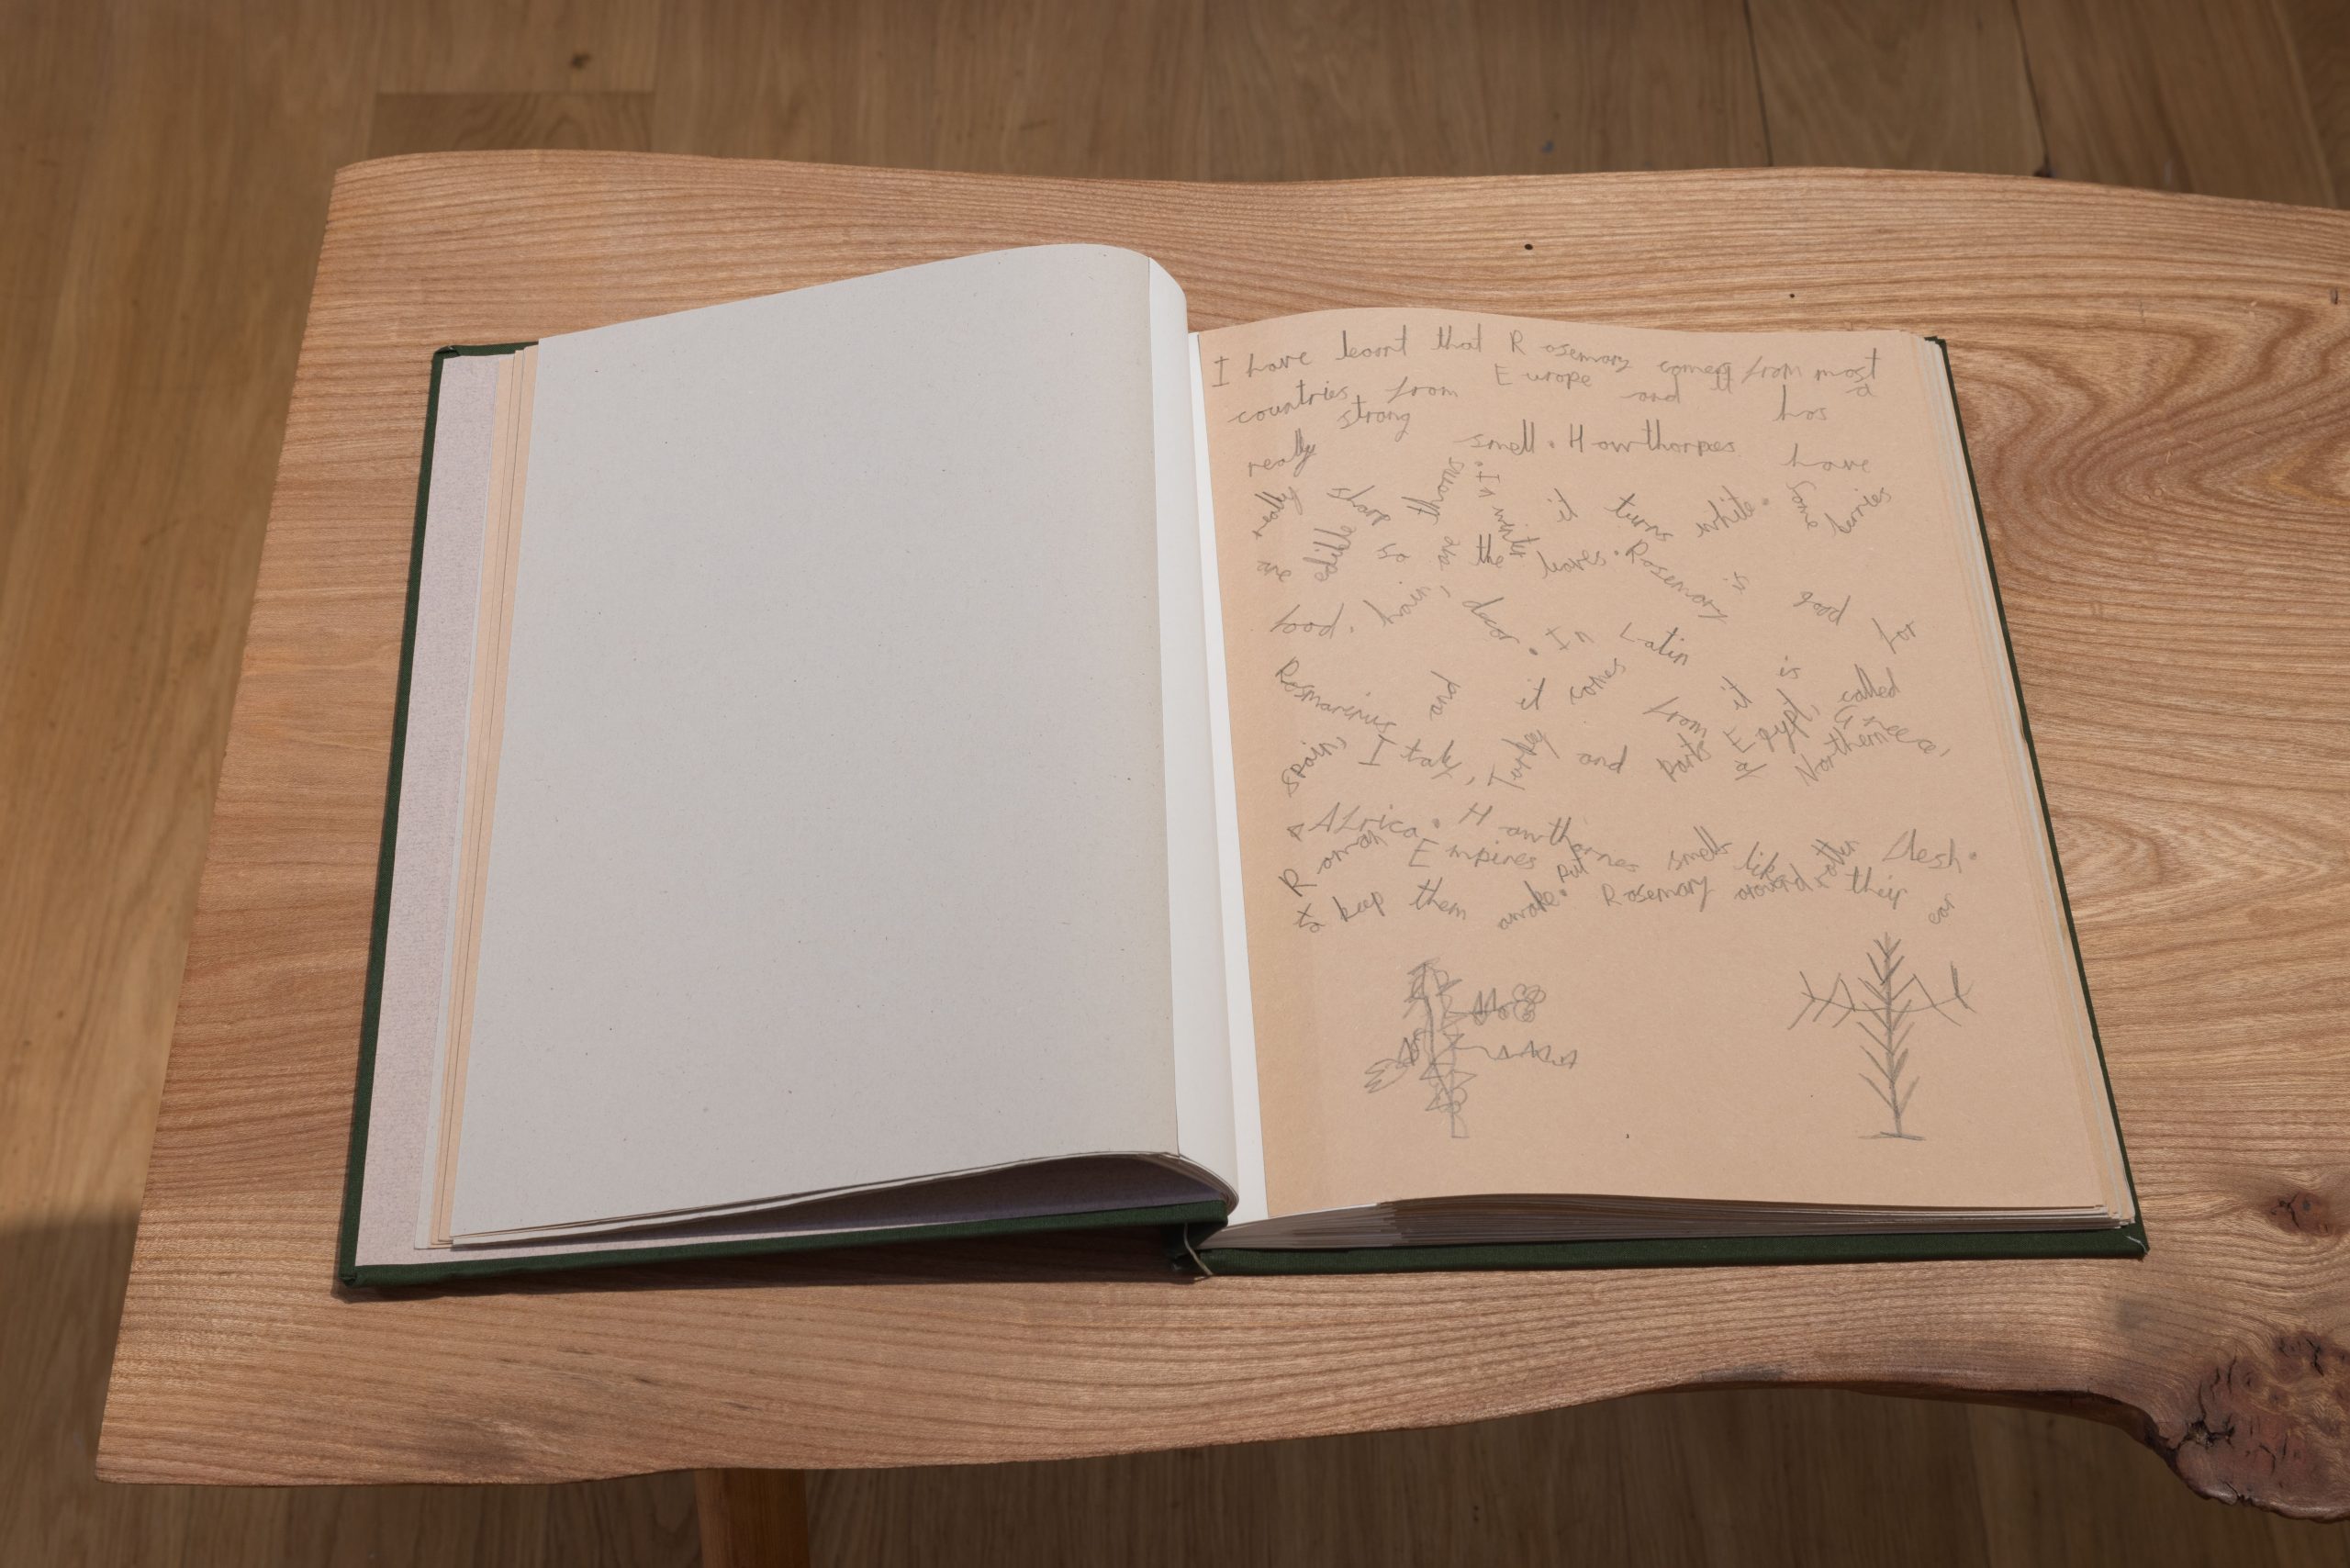 I have learnt that Rosemary comes from most
countries from Europe and has a
really strong smell. Howthorpes have
really sharp thorns. In winter it turns white. Some burries
are edible so are the leaves. Rosemary is good for
food, hair, decor. In Latin it is called
Rosmarinus and it comes from Egypt, Greece,
Spain, Italy, Turkey and parts of Northern
Africa. Hawthornes smells like rotten flesh.
Roman Empires put Rosemary around their ear
to keep them awake.